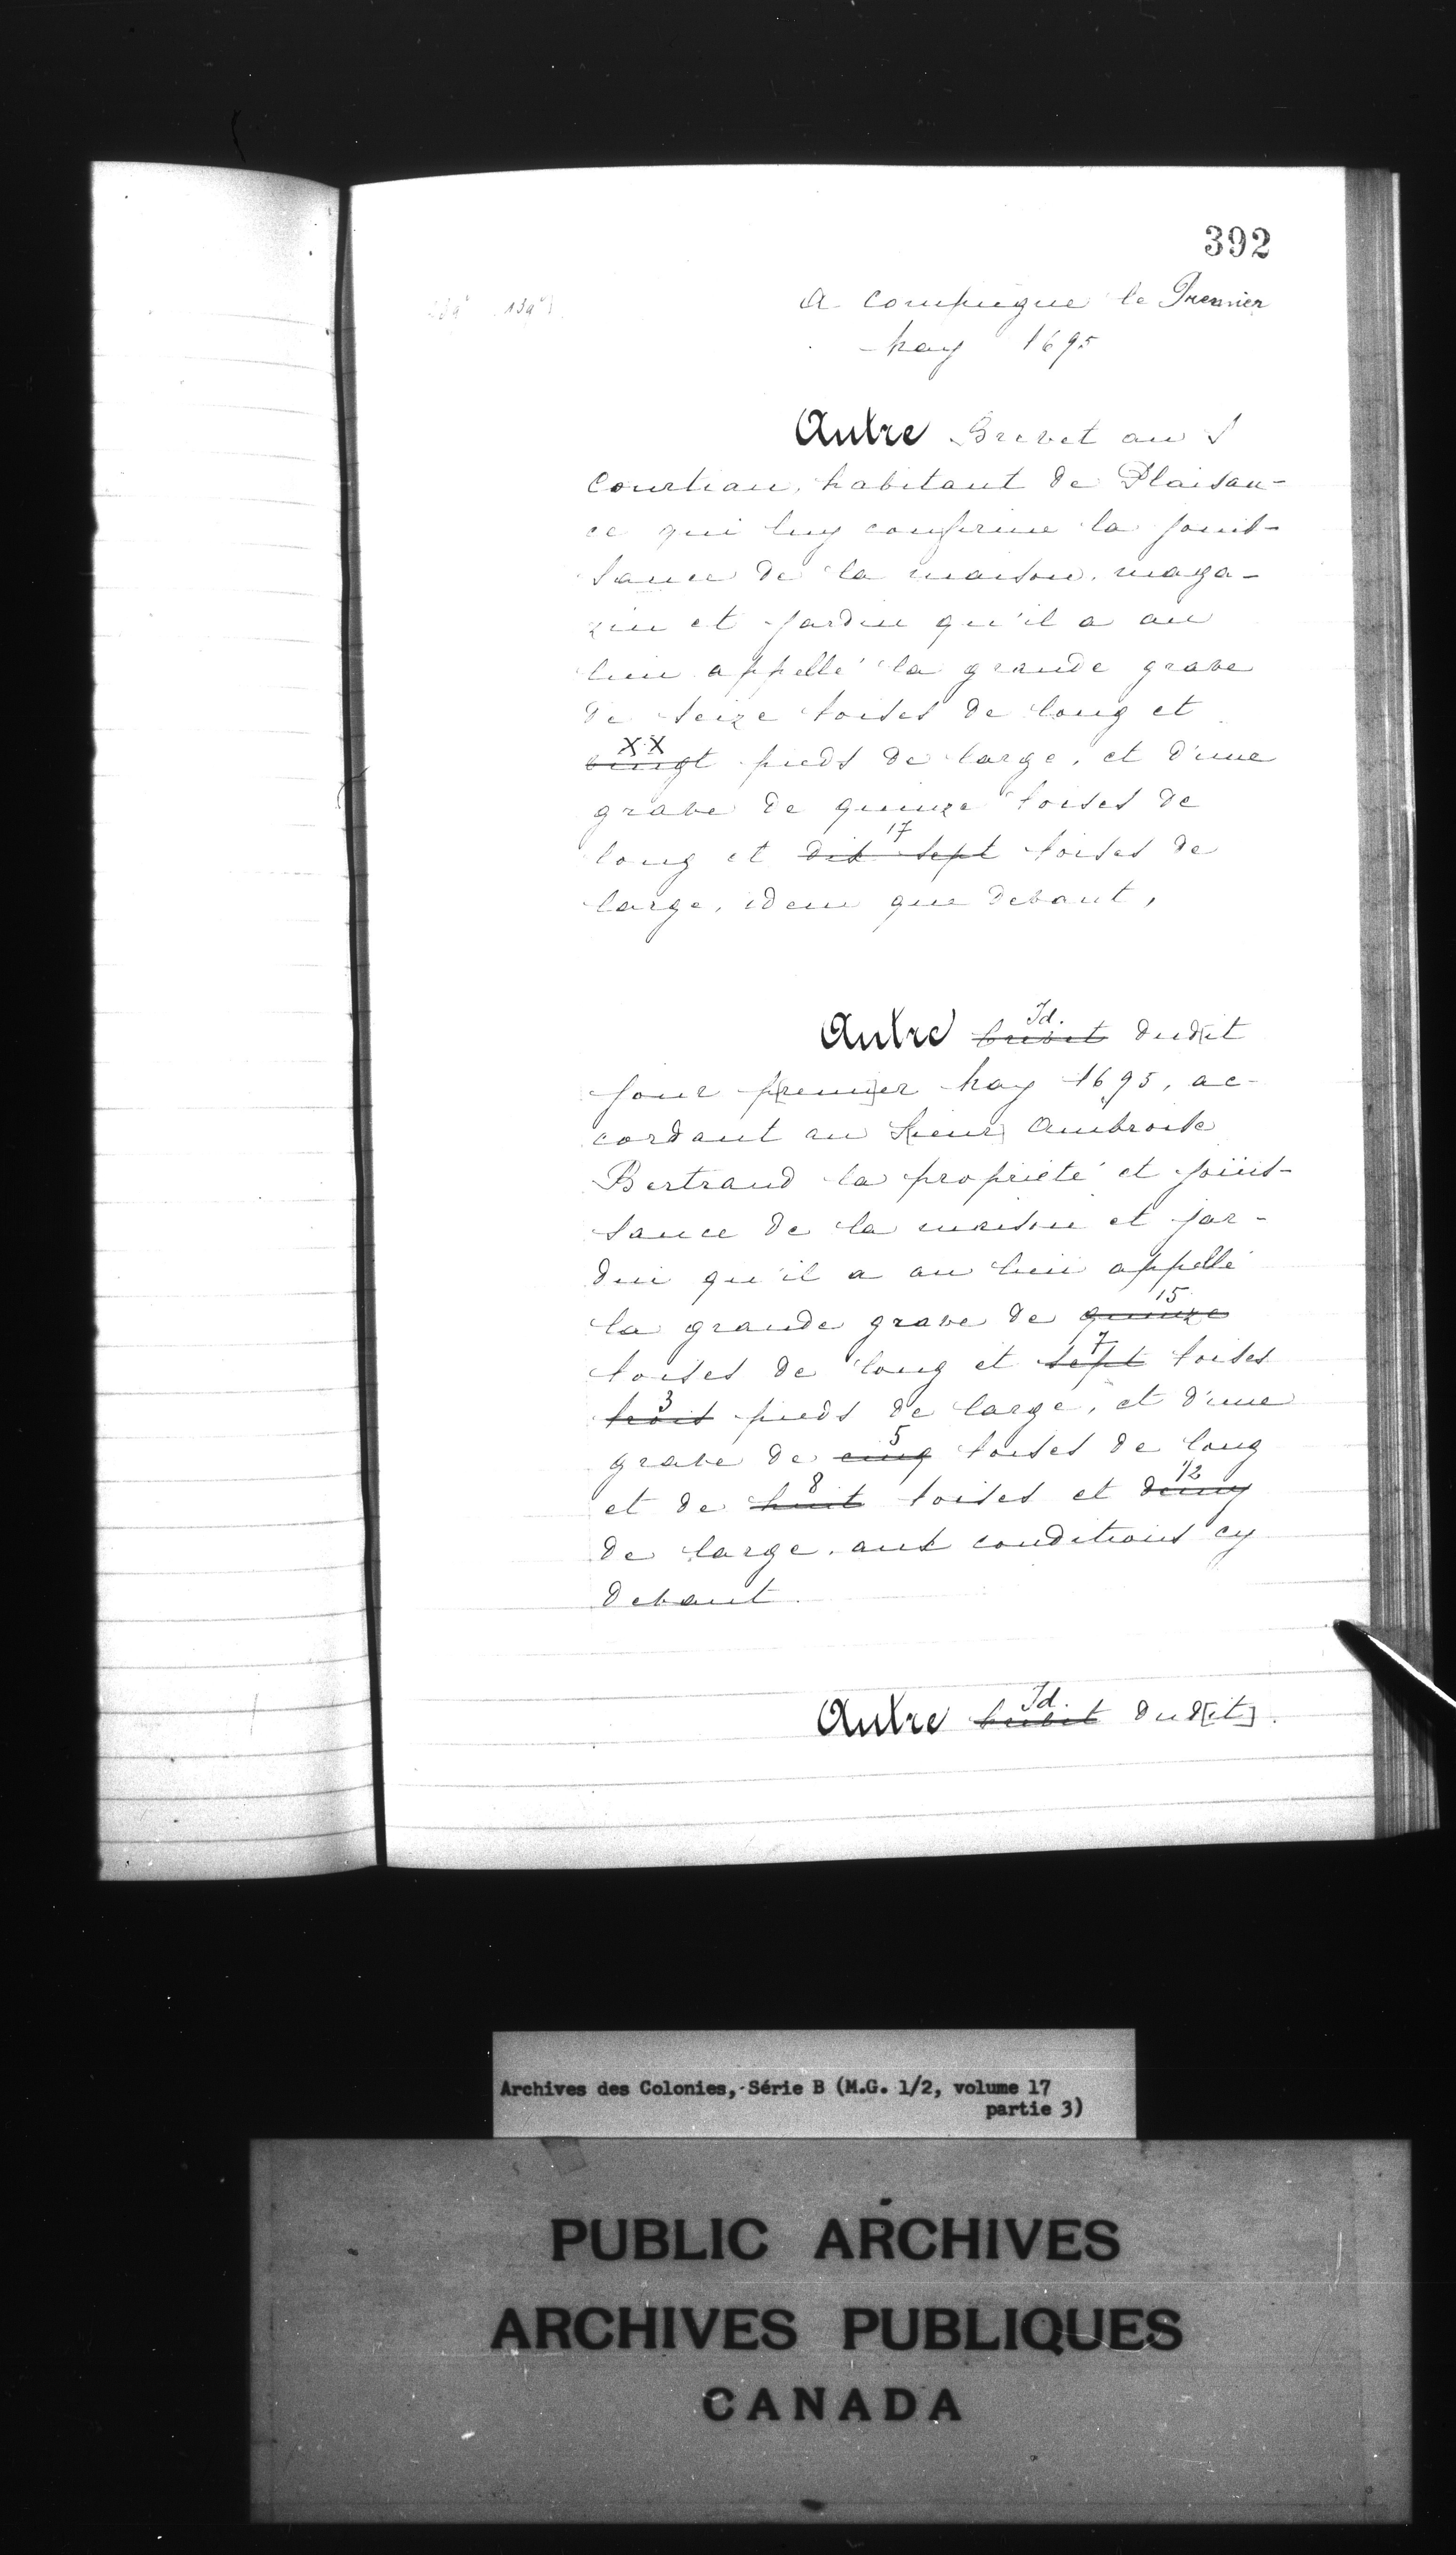 392
A Compiegne le Premier
May 1695
Autre Brevet au S
Courtiau, habitant de Plaisan-
ce qui luy confirme la jouis-
sance de la maison, maga-
zin et jardin qu'il a au
lieu appellé la grande grave
de seize toises de long et
XX
vingt pieds de large, et d'une
grave de quinze toises de
17
long et dix sept toises de
large, idem que devant,
Id.
Autre brevet dud[it
jour p[remi]er May 1695, ac-
cordant au S[ieur] Ambroise
Bertrand la proprieté et joüis-
sance de la maison et jar-
din qu'il a au lieu appellé
15
la grande grave de quinze
7
toises de long et sept toises
3
trois pieds de large, et d'une
5
grave de cinq toises de long
8 1/2
et de huit toises et demy
de large, aux conditions cy
devant.
Id.
Autre brevet dud[it].
Archives des Colonies, Série B (M.G. 1/2, volume 17
partie 3)
PUBLIC ARCHIVES
ARCHIVES PUBLIQUES
CANADA